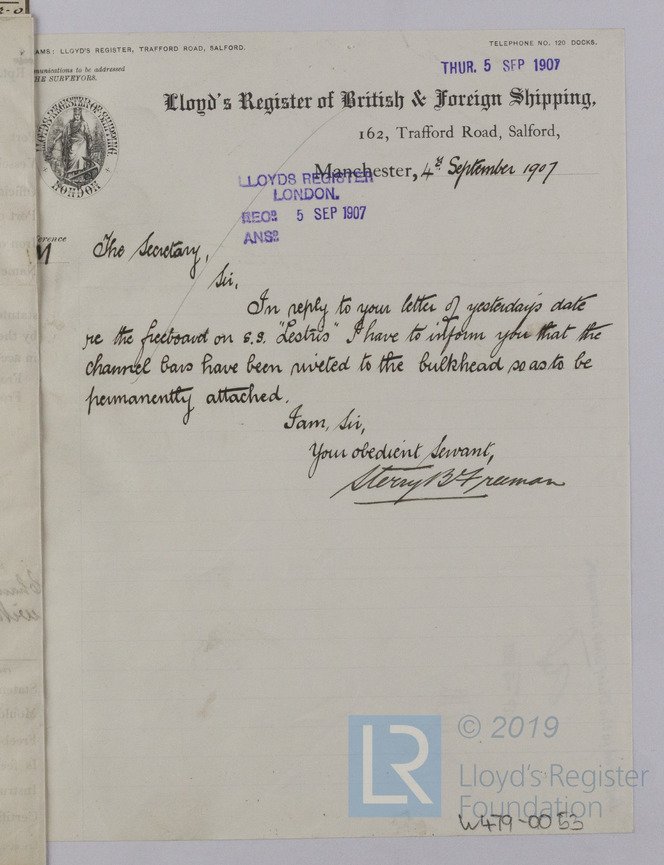 AMS: LLOYD'S REGISTER, TRAFFORD ROAD, SALFORD.
TELEPHONE NO. 120 DOCKS.
munications to be addressed
HE SURVEYORS.
THUR. 5 SEP 1907
Lloyd's Register of British & Foreign Shipping,
162, Trafford Road, Salford,
Manchester, 4th September 1907
LLOYDS REGISTER
LONDON.
REC? 5 SEP 1907
ANS?
LLOYD'S REGISTER OF SHIPPING
LONDON
erence
M
The Secretary,
Sir,
In reply to your letter of yesterday's date
re the freeboard on s.s. "Lestris" I have to inform you that the
channel bars have been riveted to the bulkhead so as to be
permanently attached.
I am, Sir,
Your obedient Servant,
Sterry B Freeman
LR
© 2019
Lloyd's Register
Foundation
W479-0053